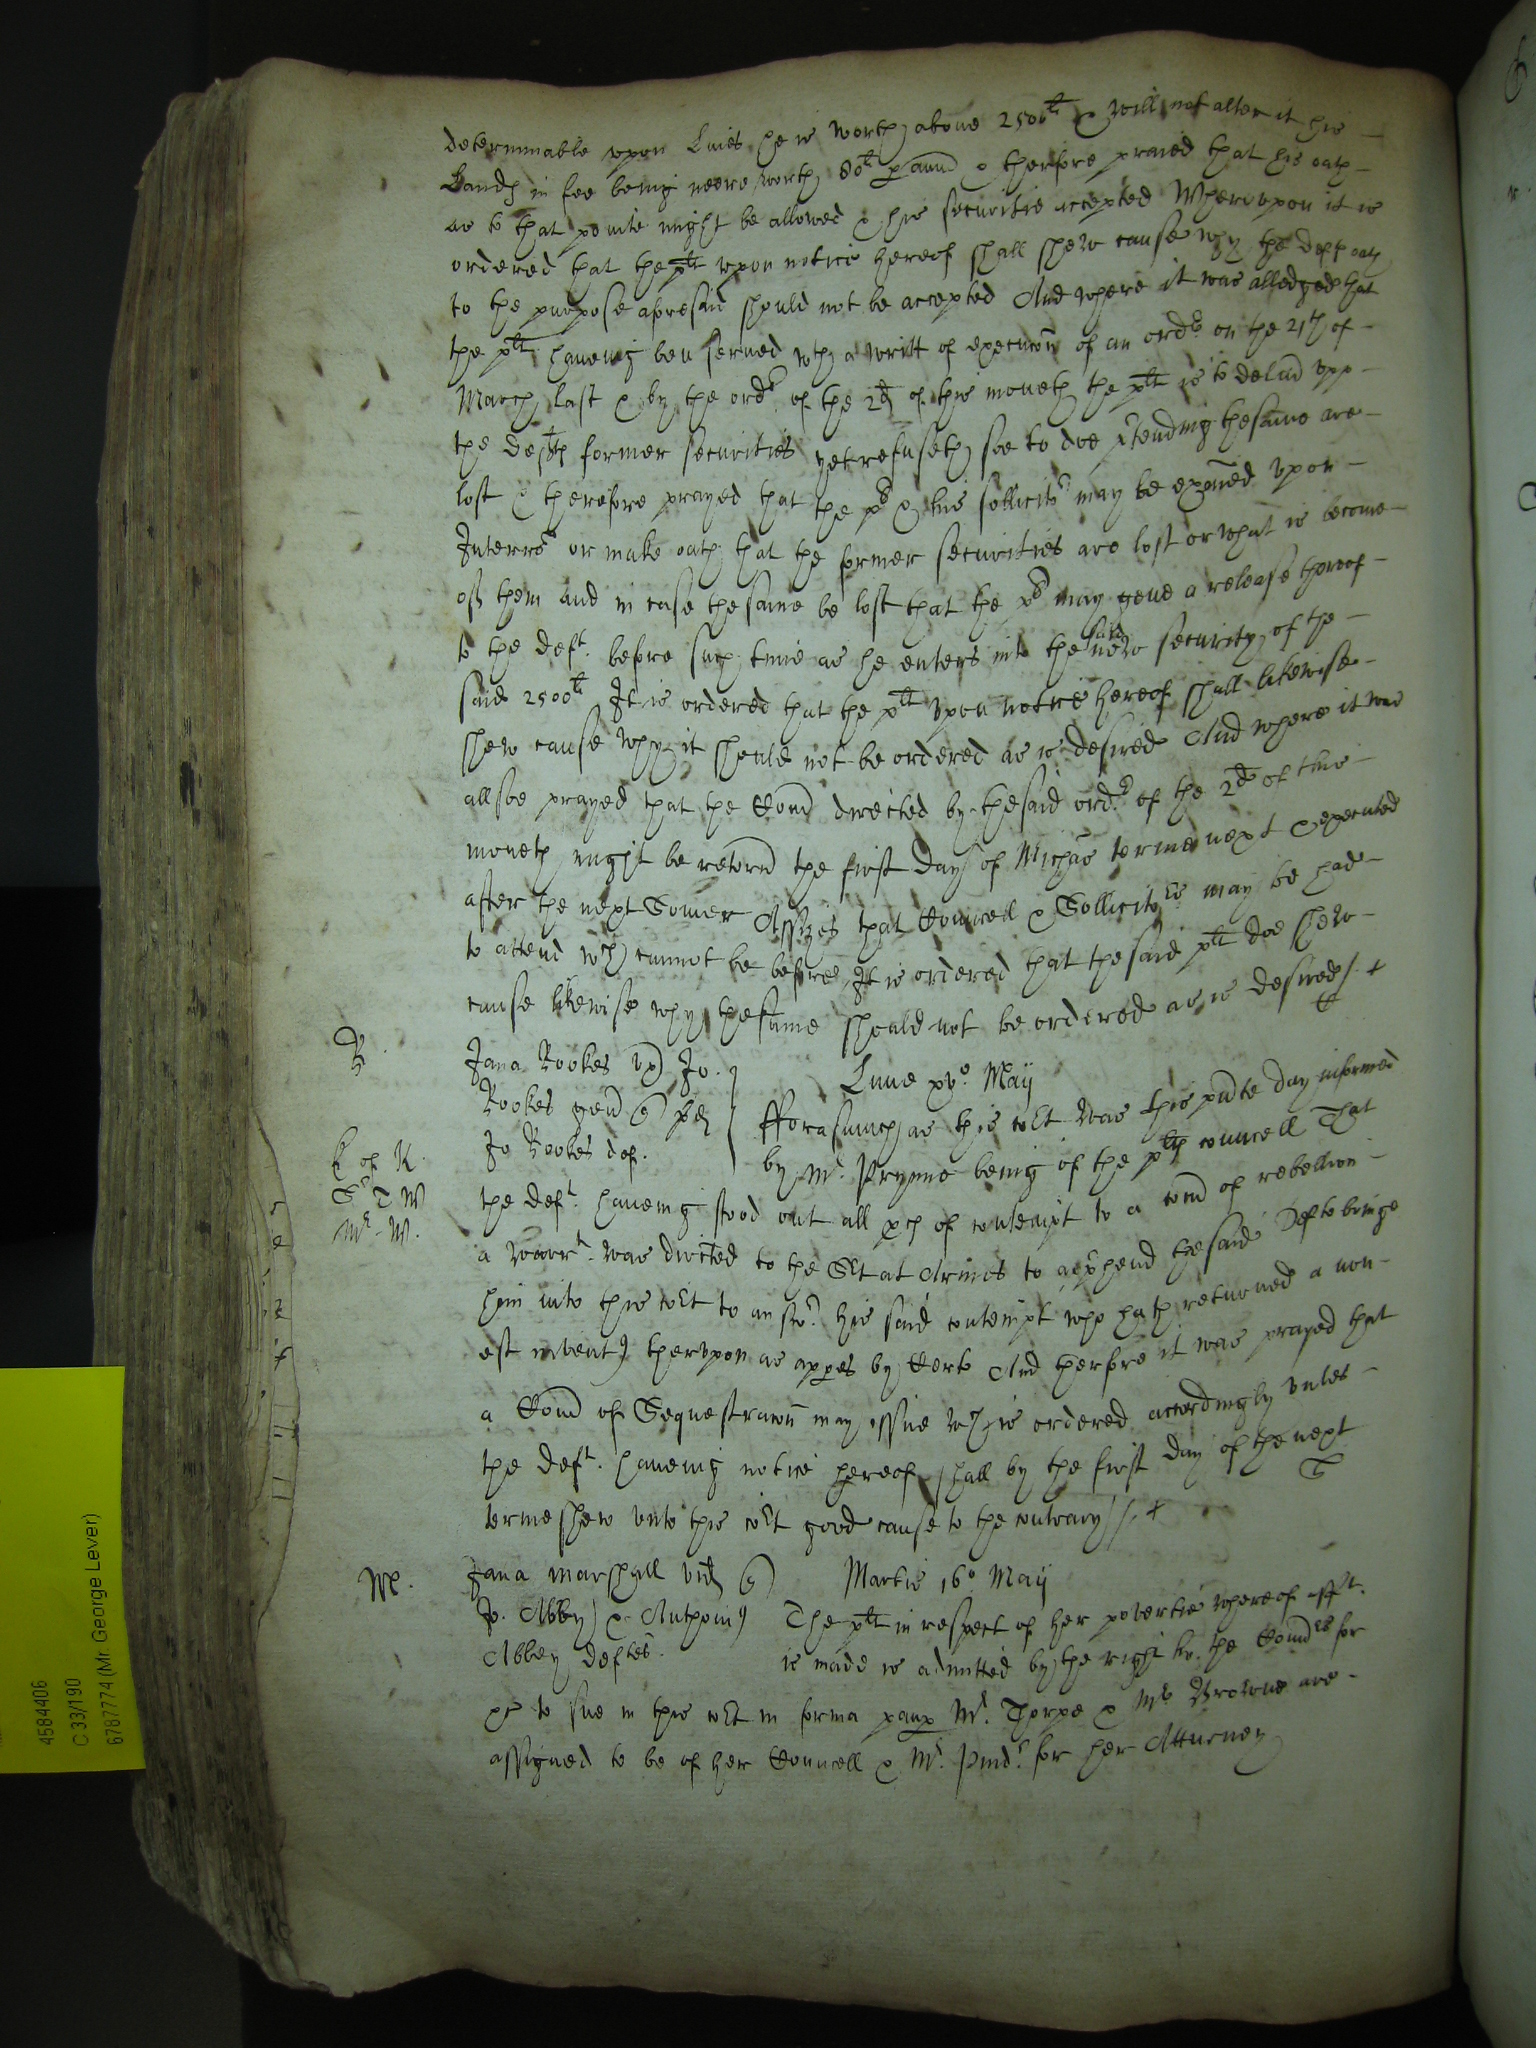 determinable vpon Lives he is worth above 2500li & will not alter it his
Lands in fee being neere worth 80li p ann & therfore praied that his oath
as to that pointe might be allowed & his securitie accepted Wherevpon it is
ordered that the plt vpon notice hereof shall shew cause why the defts oath
to the purpose aforesaid should not be accepted And where it was alledged that
the plt haveing ben served wth a writt of execucon of an ordr on the 21th of
March last & by the ordr of the 2d of this moneth the plt is to deliv vpp
the defts former securities yet refuseth soe to doe p'tending the same are
lost & therefore prayed that the pl & his sollicitr may be exaied vpon
Interrs or make oath that the former securities are lost or what is become
off them And in case the same be lost that the pl may geve a release thereof
to the deft. before such time as he enters into the said new security of the
said 2500li It is ordered that the plt vpon notice hereof shall likewise
shew cause why it should not be ordered as is desired And where it was
allsoe prayed that the Com directed by the said ordr of the 2d of this
moneth might be retorn the first day of Michas terme next & executed
after the next Somer Assizes that Councell & Sollicitors may be had
to attend wch cannot be before It is ordered that the said plt doe shew
cause likewise why the same should not be ordered as is desired /. +
R
Jana Rookes vx Jo.
Rookes gen q
Jo Rookes def.
Lune xvo. Maij
Fforasmuch as this cort was this pnte day informed
by Mr. Prynne being of the plts councell That
L of K.
Sr T W
Mr. W.
the deft. haveing stood out all pces of contempt to a com of rebellion
a warrt. was directed to the Sert at Armes to apphend the said Def to bringe
him into this cort to answ. his said contempt who hath returned a non
est invent9 thervpon as appes by Certe And therfore it was prayed that
a Com of Sequestracon may issue wch is ordered accordingly vnles
the deft. haveing notice hereof shall by the first day of the next
terme shew vnto this cort good cause to the contrary /. +
M.
Jana Marshall vid q
Jo. Abby & Anthoni9
Abbey deftes.
Martis 16o Maij
The plt in respect of her povertie whereof afft.
is made is admitted by the right ho. the Comrs for
to sue in this cort in forma paup Mr. Thorpe & Mr Browne are
assigned to be of her Councell & Mr. Pindr. for her Atturney
4584406
C 33/190
6787774 (Mr. George Lever)